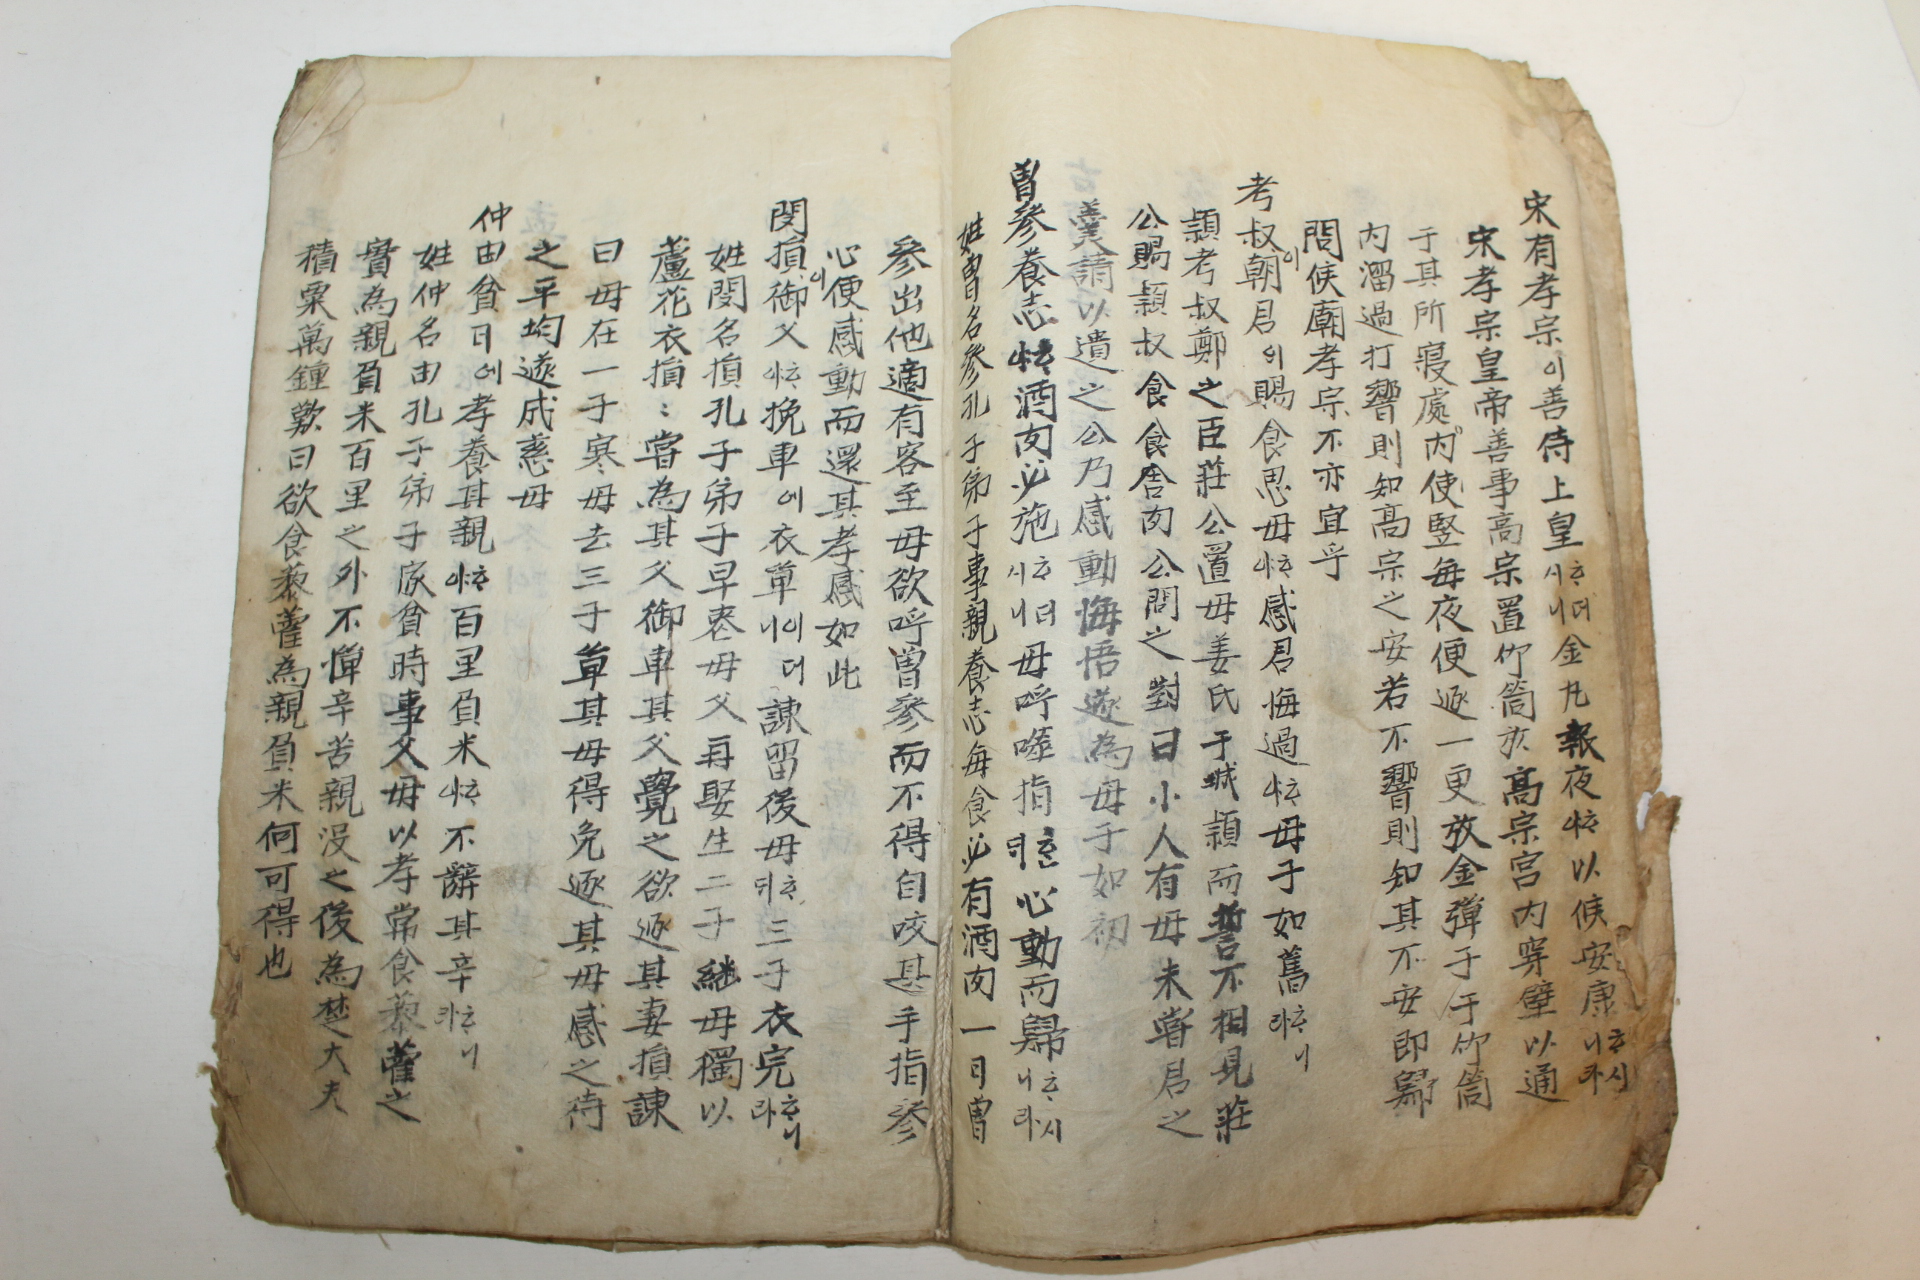 宋有孝宗이善侍上皇시ᄒᆞ니더金丸報夜ᄒᆡ以候安康니ᄒᆞ라시
宋孝宗皇帝善事高宗置竹筒於高宗宮內穿壁以通
于其所寢處內使竪每夜便返一更放金彈子于竹筒
內溜過打響則知高宗之安若不響則知其不安即歸
問候廟孝宗不亦宜乎
考叔이朝君의賜食思母ᄒᆡ感君悔過ᄒᆡ母子如舊라ᄒᆞ니
穎考叔鄭之臣莊公置母姜氏于城穎而誓不相見莊
公賜穎叔食食舍肉公問之對曰小人有母未嘗君之
羹請以遺之公乃感動悔悟遂為母子如初
曾參養志ᄒᆡ酒肉必施시ᄒᆞ니더母呼噬指心動而歸니ᄒᆞ라시
姓曾名參孔子弟子事親養志每食必有酒肉一日曾
參出他適有客至母欲呼曾參而不得自咬其手指參
心이便感動而還其孝感如此
閔損御父ᄒᆡ挽車에衣單니이더諫留後母더ᄒᆞ三子衣完라ᄒᆞ니
姓閔名損孔子弟子早喪母父再娶生二子繼母獨以
蘆花衣損﹕嘗為其父御車其父覺之欲返其妻損諫
曰母在一子寒母去三子單其母得免逐其母感之待
之平均遂成慈母
仲由貧日에孝養其親ᄒᆡ百里負米ᄒᆡ不辭其辛라ᄒᆞ니
姓仲名由孔子弟子家貧時事父母以孝常食藜藿之
實為親負米百里之外不憚辛苦親沒之後為楚大夫
積粟萬鍾歎曰欲食藜藿為親負米何可得也